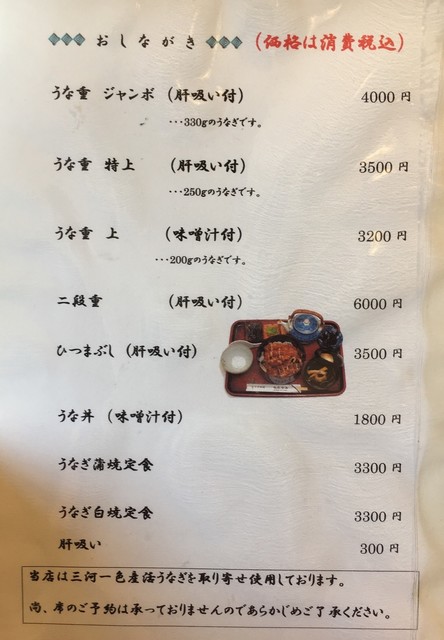 おしながき (価格は消費税込)
うな重 ジャンボ (肝吸い付) 4000 円
・・・330gのうなぎです。
うな重 特上 (肝吸い付) 3500 円
・・・250gのうなぎです。
うな重 上 (味噌汁付) 3200 円
・・・200gのうなぎです。
二段重 (肝吸い付) 6000 円
ひつまぶし (肝吸い付) 3500 円
うな丼 (味噌汁付) 1800 円
うなぎ蒲焼定食 3300 円
うなぎ白焼定食 3300 円
肝吸い 300 円
当店は三河一色産活うなぎを取り寄せ使用しております。
尚、席のご予約は承っておりませんのであらかじめご了承ください。